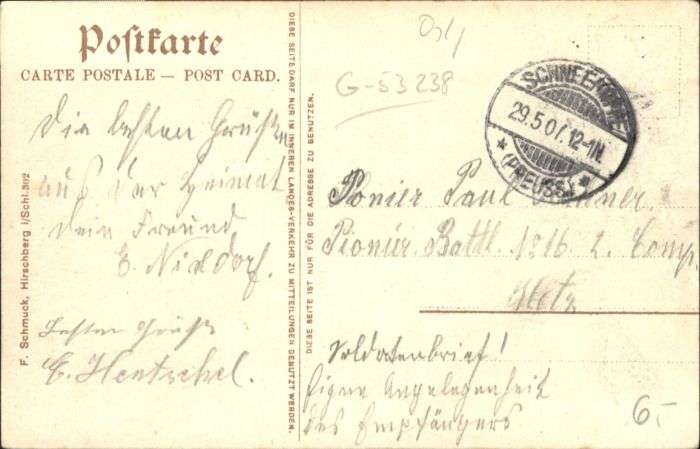 Postkarte
CARTE POSTALE — POST CARD.
Die besten Grüße
aus der Heimat
Dein Freund
E. Nixdorf.
Besten Gruß
E. Hentschel.
F. Schmuck, Hirschberg i/Schl.
DIESE SEITE DARF NUR IM INNEREN LANDES-VERKEHR ZU MITTEILUNGEN BENUTZT WERDEN.
DIESE SEITE IST NUR FÜR DIE ADRESSE ZU BENUTZEN.
G-53238
29.5.07.12-1N.
(PREUSS.)
Ponier Paul
Pionier Battl. No 16 2. Comp.
Metz
Soldatenbrief!
Eigne Angelegenheit
des Empfängers
6.-